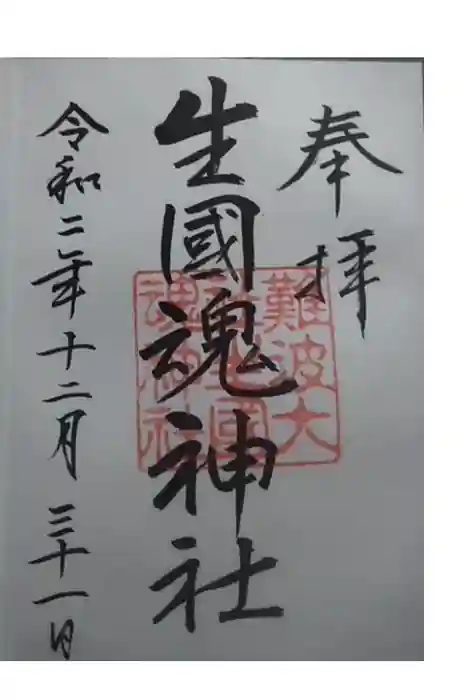 奉拝
生國魂神社
難波大
社生國
魂神社
令和二年十二月三十一日